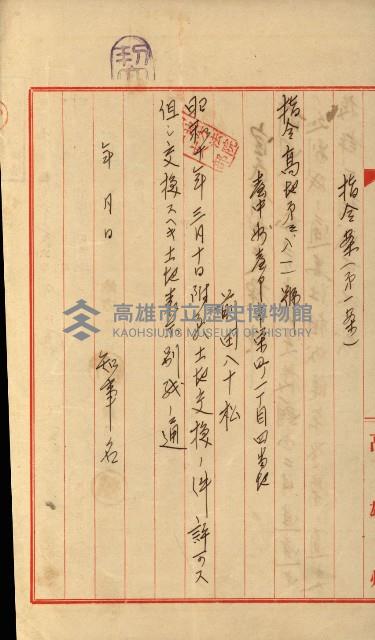 指令案（第一案）
指令高地第三八一一號
臺中州臺中市榮町一丁目四番地
八十松
昭和十年三月十日附願土地交換ノ件許可ス
但シ交換スヘキ土地表示別紙ノ通
年 月 日
知事名
高雄市立歷史博物館
KAOHSIUNG MUSEUM OF HISTORY
高雄州